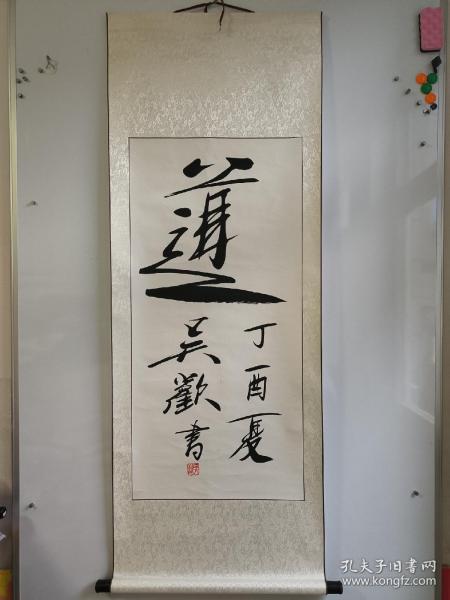 道
丁酉夏
吴歡書
孔夫子旧书网
www.kongfz.com